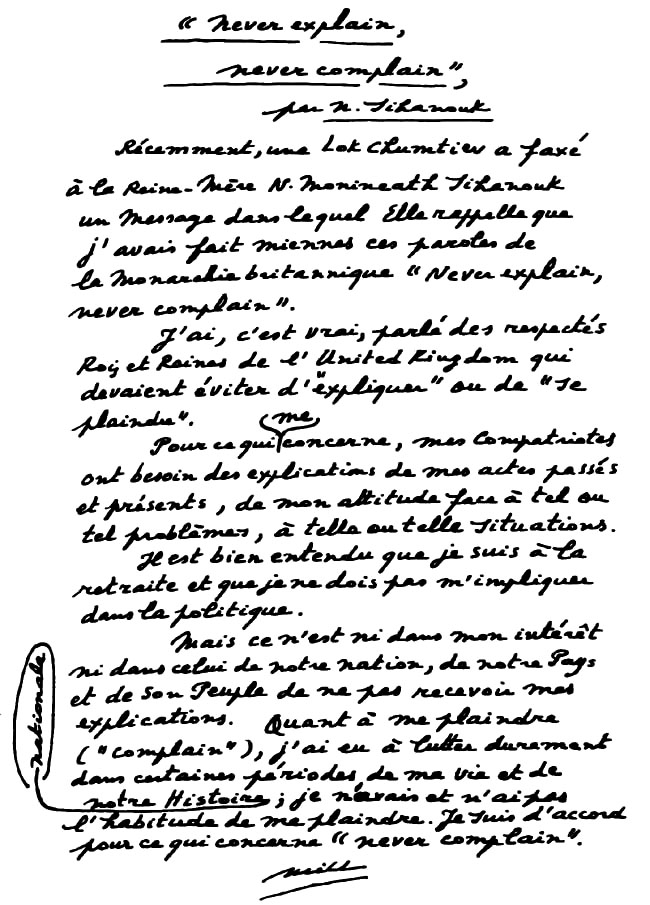 "Never explain,
never complain",
par N. Sihanouk
Récemment, une Lok Chumtiev a faxé
à la Reine-Mère N. Monineath Sihanouk
un Message dans lequel Elle rappelle que
j'avais fait miennes ces paroles de
la Monarchie britannique "Never explain,
never complain".
J'ai, c'est vrai, parlé des respectés
Rois et Reines de l'United Kingdom qui
devaient éviter d'"expliquer" ou de "se
plaindre".
me
Pour ce qui concerne, mes Compatriotes
ont besoin des explications de mes actes passés
et présents, de mon attitude face à tel ou
tel problèmes, à telle ou telle situations.
Il est bien entendu que je suis à la
retraite et que je ne dois pas m'impliquer
dans la politique.
Mais ce n'est ni dans mon intérêt
ni dans celui de notre nation, de notre Pays
et de son Peuple de ne pas recevoir mes
explications. Quant à me plaindre
("complain"), j'ai eu à lutter durement
dans certaines périodes de ma vie et de
notre Histoire; je n'avais et n'ai pas
nationale
l'habitude de me plaindre. Je suis d'accord
pour ce qui concerne "never complain".